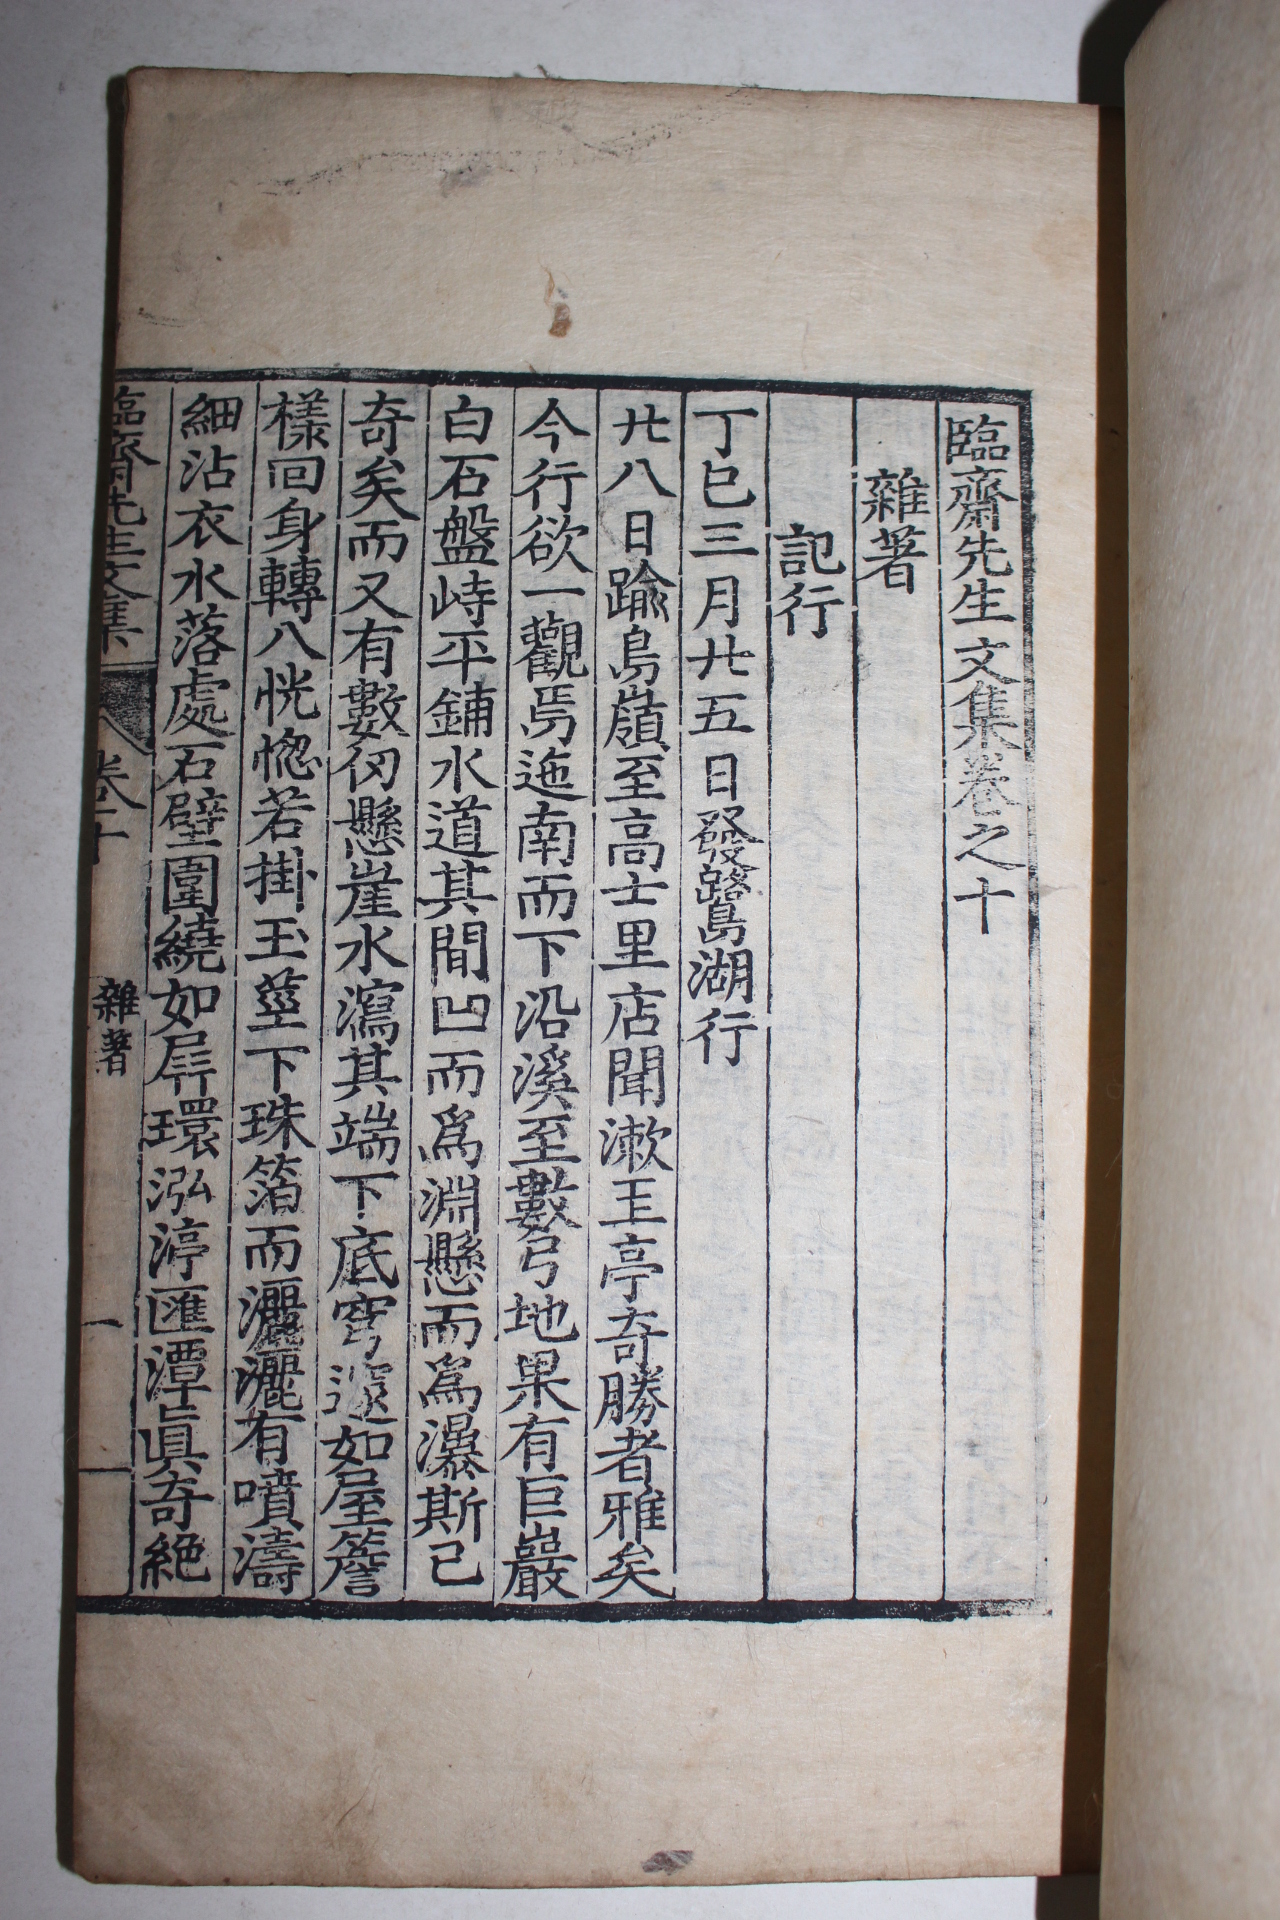 臨齋先生文集卷之十
雜著
記行
丁巳三月廿五日發鷺島湖行
廿八日踰鳥嶺至高士里店聞漱玉亭奇勝者雅矣
今行欲一觀焉迤南而下沿溪至數弓地果有巨巖
白石盤峙平鋪水道其間凹而爲淵懸而爲瀑斯已
奇矣而又有數仞懸崖水瀉其端下底穹邃如屋簷
樣回身轉入恍惚若掛玉莖下珠箔而灑灑有噴濤
細沾衣水落處石壁圍繞如屛環泓渟匯潭眞奇絶
臨齋先生文集 卷十 雜著 一